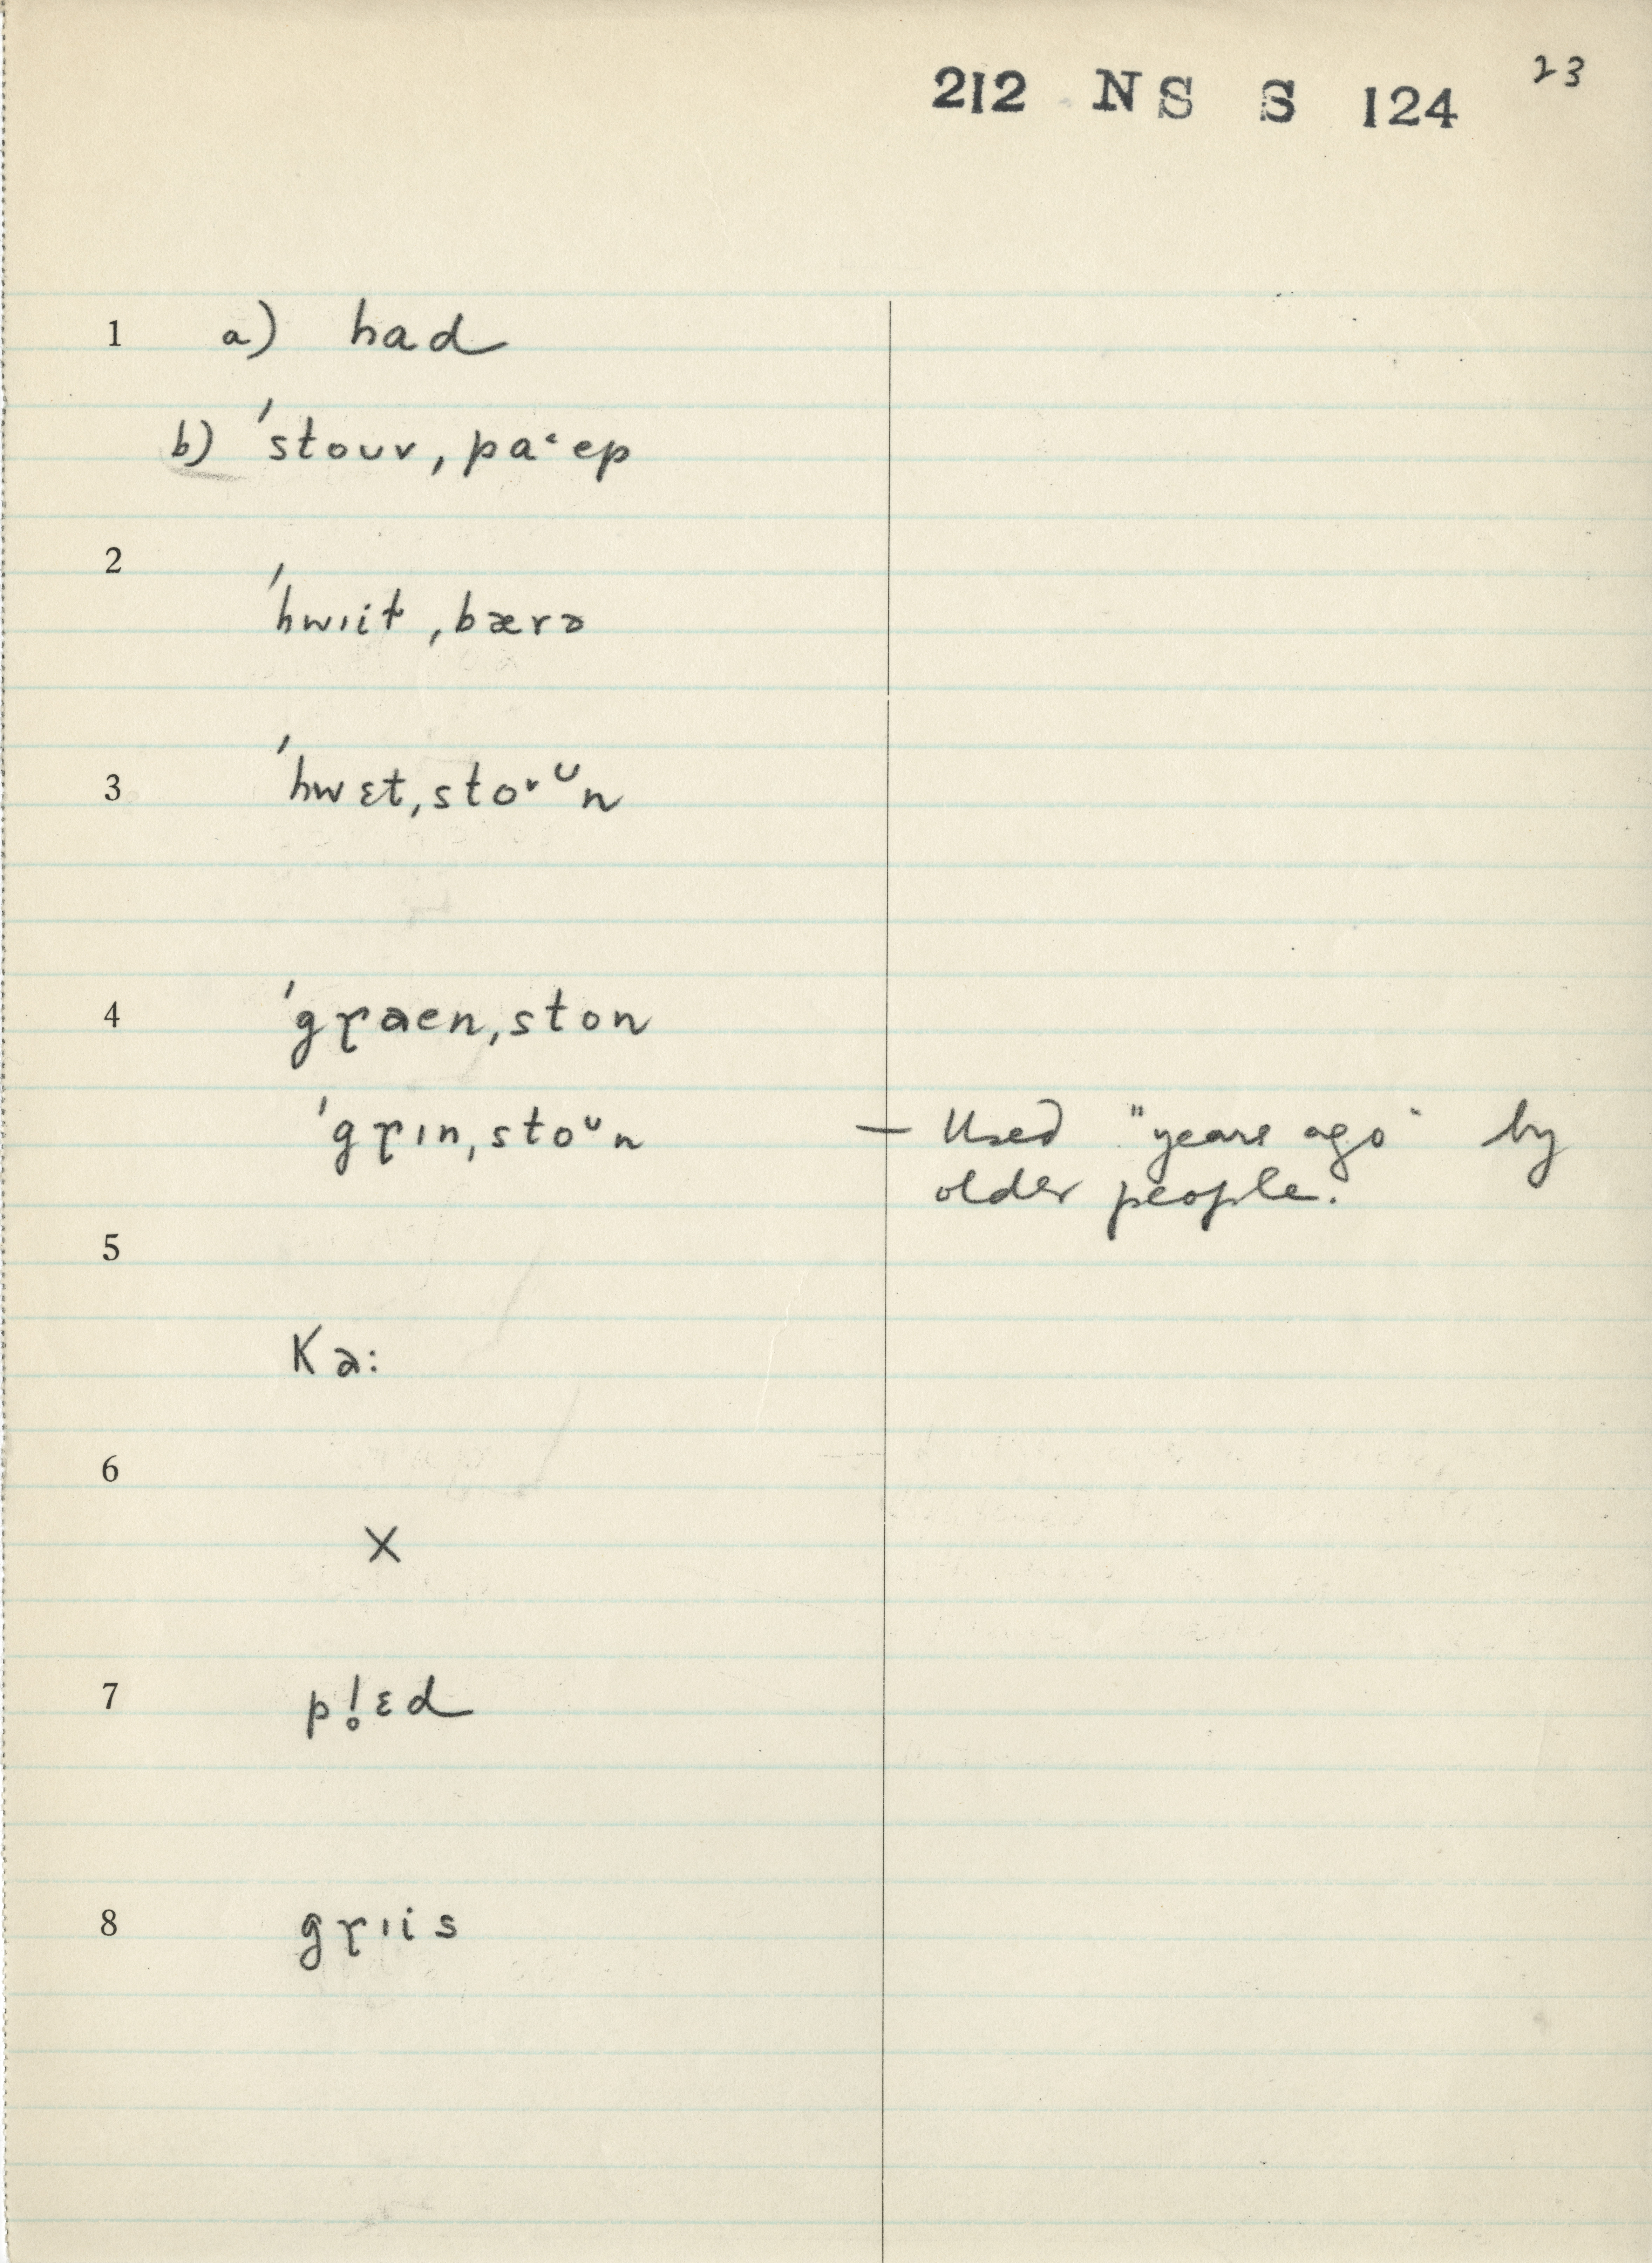 212 NS S 124 23
1 a) had
b) ˈstouv ˌpaˑep
2
ˈhwɪit ˌbærə
3 ˈhwɛt ˌstoˑᴜn
4 ˈgɽaen ˌston
ˈgɽɪn ˌstoᴜn — Used "years ago" by
older people.
5
Ka:
6
X
7 pl̥ɛd
8 gɽɪis